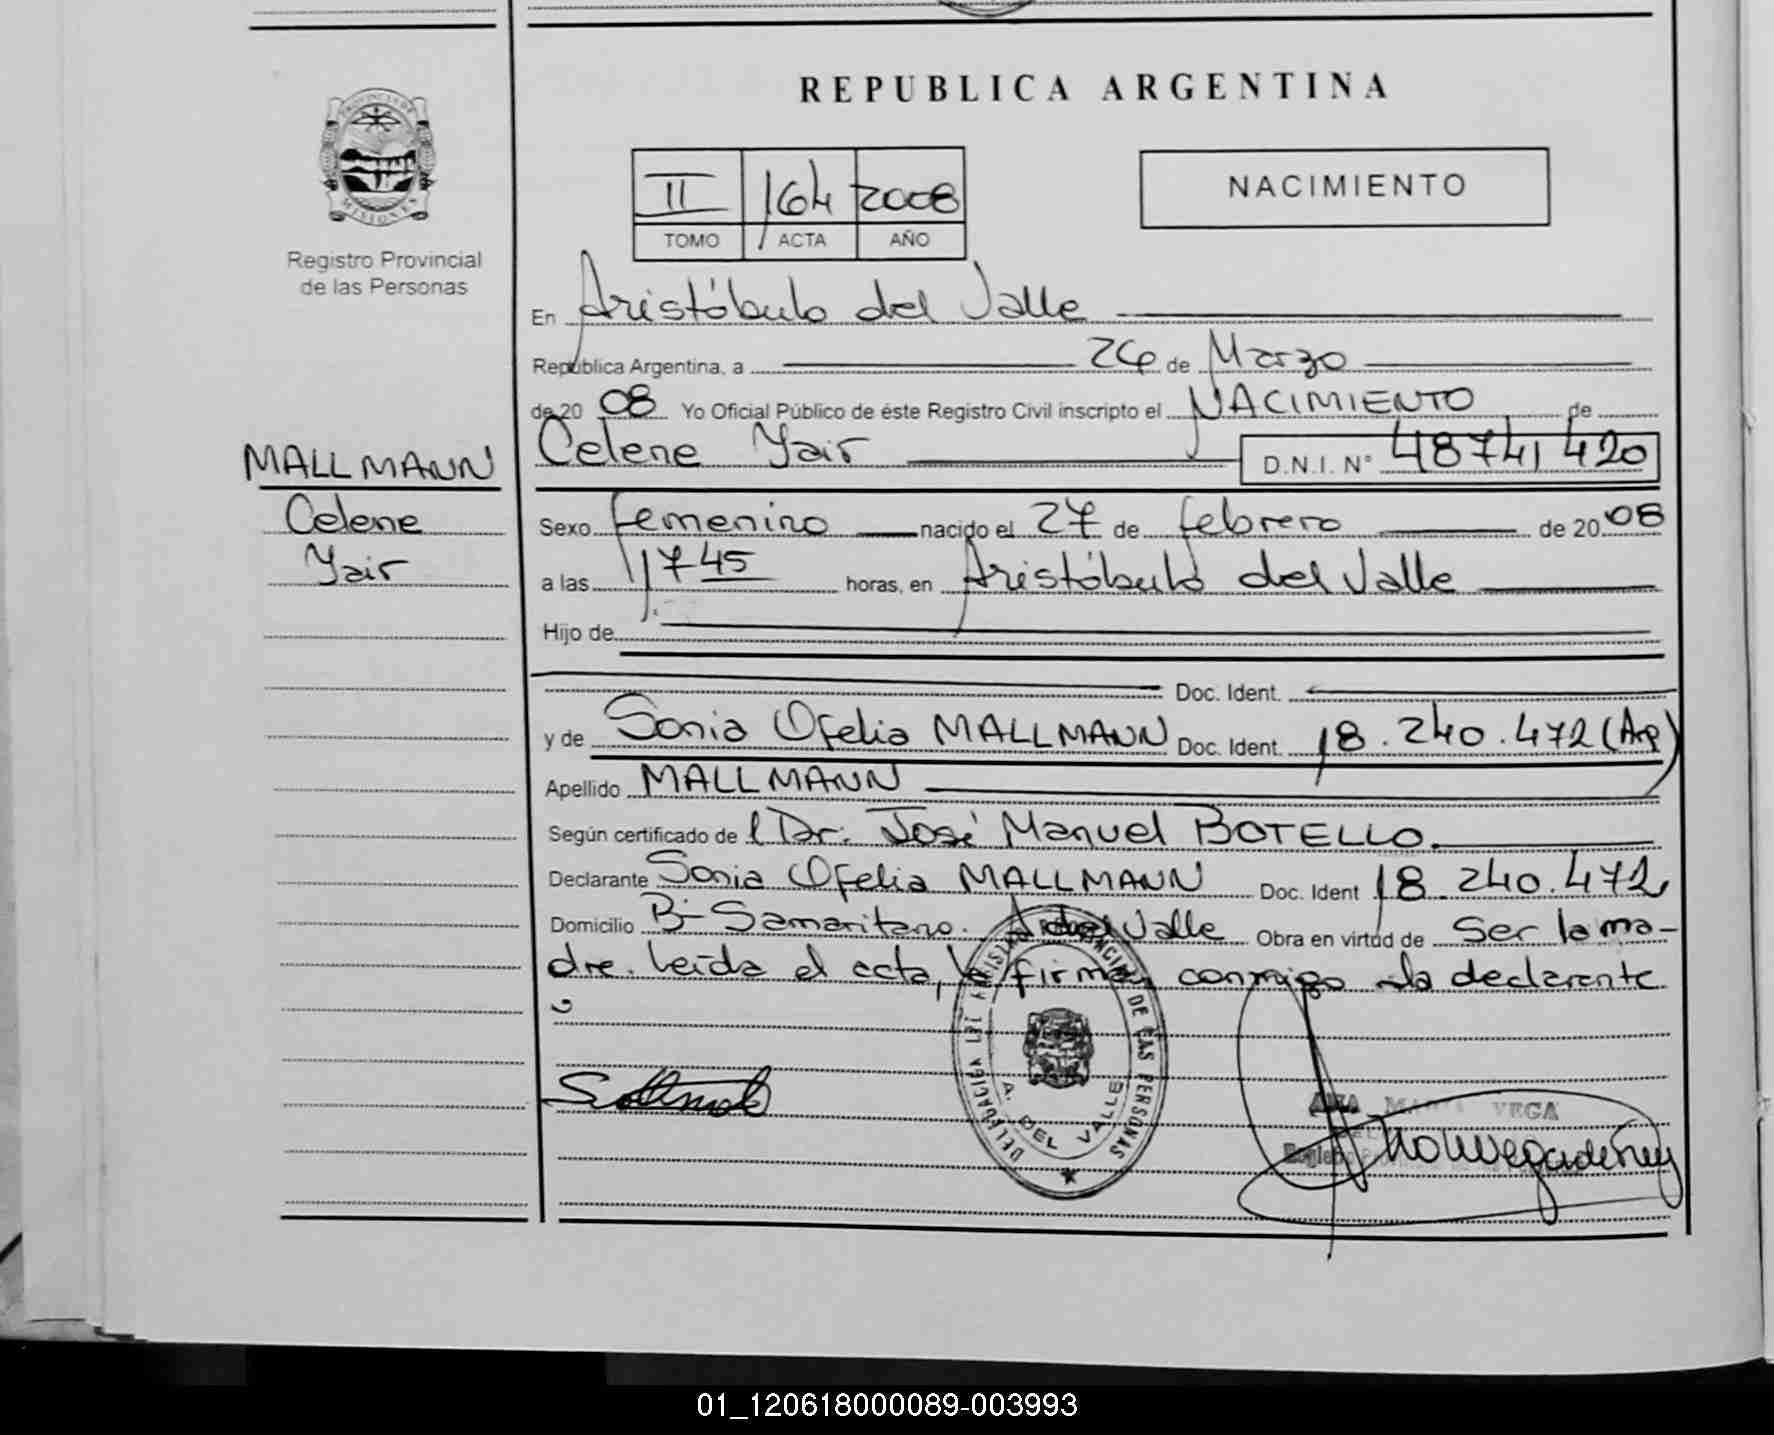 REPUBLICA ARGENTINA
PROVINCIA DE
MISIONES
Registro Provincial
de las Personas
II 164 2008
TOMO ACTA AÑO
NACIMIENTO
En Aristóbulo del Valle
República Argentina, a 26 de Marzo
de 20 08 Yo Oficial Público de éste Registro Civil inscripto el NACIMIENTO de
Celene Yair D.N.I. N° 48741420
MALLMANN
Celene
Yair
Sexo femenino nacido el 27 de febrero de 20 08
a las 1745 horas, en Aristóbulo del Valle
Hijo de
Doc. Ident.
y de Sonia Ofelia MALLMANN Doc. Ident. 18.240.472 (Arg)
Apellido MALLMANN
Según certificado de l Dr. José Manuel BOTELLO.
Declarante Sonia Ofelia MALLMANN Doc. Ident 18.240.472
Domicilio Bº Samaritano. A. del Valle Obra en virtud de Ser la ma-
dre. Leída el acta, la firma conmigo la declarante
DE LAS PERSONAS
A. DEL VALLE
VEGA
01_120618000089-003993